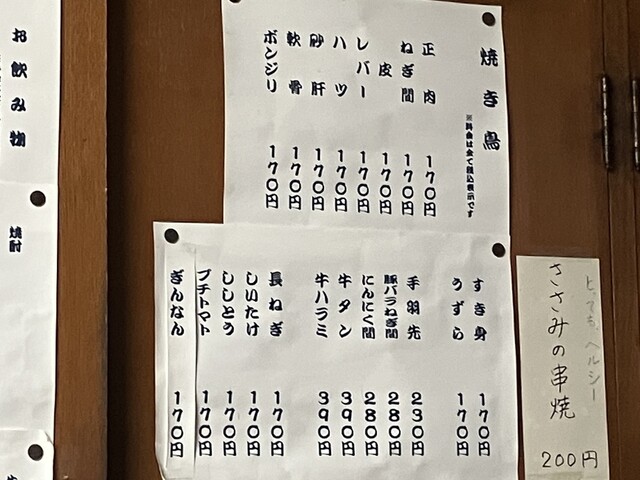 焼き鳥
※料金は全て税込表示です
正肉 170円
ねぎ間 170円
皮 170円
レバー 170円
ハツ 170円
砂肝 170円
軟骨 170円
ボンジリ 170円
すき身 170円
うずら 170円
手羽先 230円
豚バラねぎ間 280円
にんにく間 280円
牛タン 390円
牛ハラミ 390円
長ねぎ 170円
しいたけ 170円
ししとう 170円
プチトマト 170円
ぎんなん 170円
とってもヘルシー
ささみの串焼
200円
お飲み物
焼酎